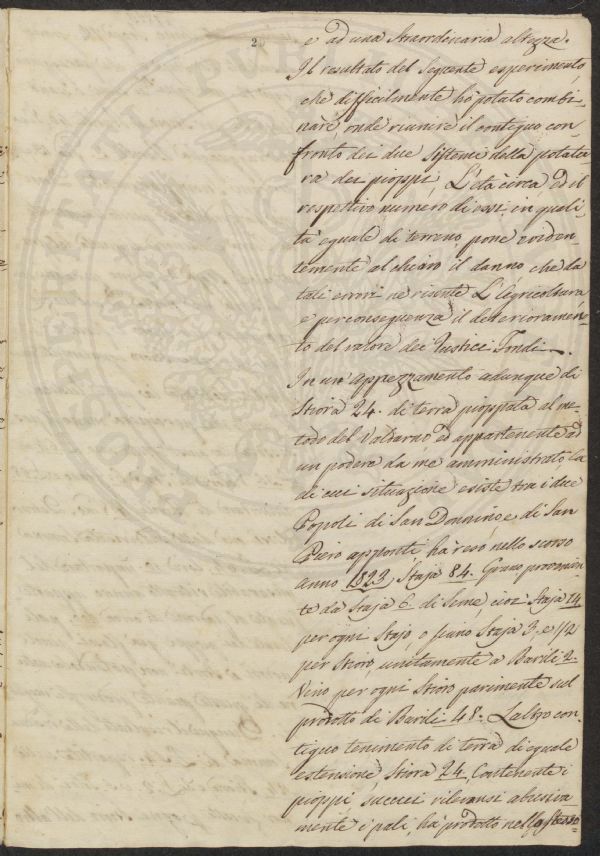 2
e ad una straordinaria altezza.
Il resultato del seguente esperimento,
che difficilmente ho potuto combi-
nare, onde riunire il contiguo con-
fronto dei due sistemi della potatu
ra dei pioppi, L'età circa ed il
respettivo numero di essi, in quali-
tà eguale di terreno, pone eviden-
temente al chiaro il danno che da
tali errori ne risente L'Agricoltura
e per conseguenza il deterioramen-
to del valore dei Rustici Fondi.
In un' appezzamento adunque di
Stiora 24. di terra pioppata al me-
todo del Valdarno ed appartenente ad
un podere da me amministrato la
di cui situazione esiste tra i due
Popoli di San Donnino, e di San
Piero apponti ha reso nello scorso
anno 1823, Staja 84. Grano provenien
te da Staja 6. di Seme, cioè Staja 14
per ogni Stajo, o siano Staja 3. e 1/2
per Stioro, unitamente a Barili 2.
Vino per ogni Stioro parimente sul
prodotto di Barili 48. L'altro con-
tiguo tenimento di terra di eguale
estensione Stiora 24. Contenente i
pioppi, succeci rilevansi abusiva
mente i pali, ha prodotto nello stesso
PROSPERITATI PUBL